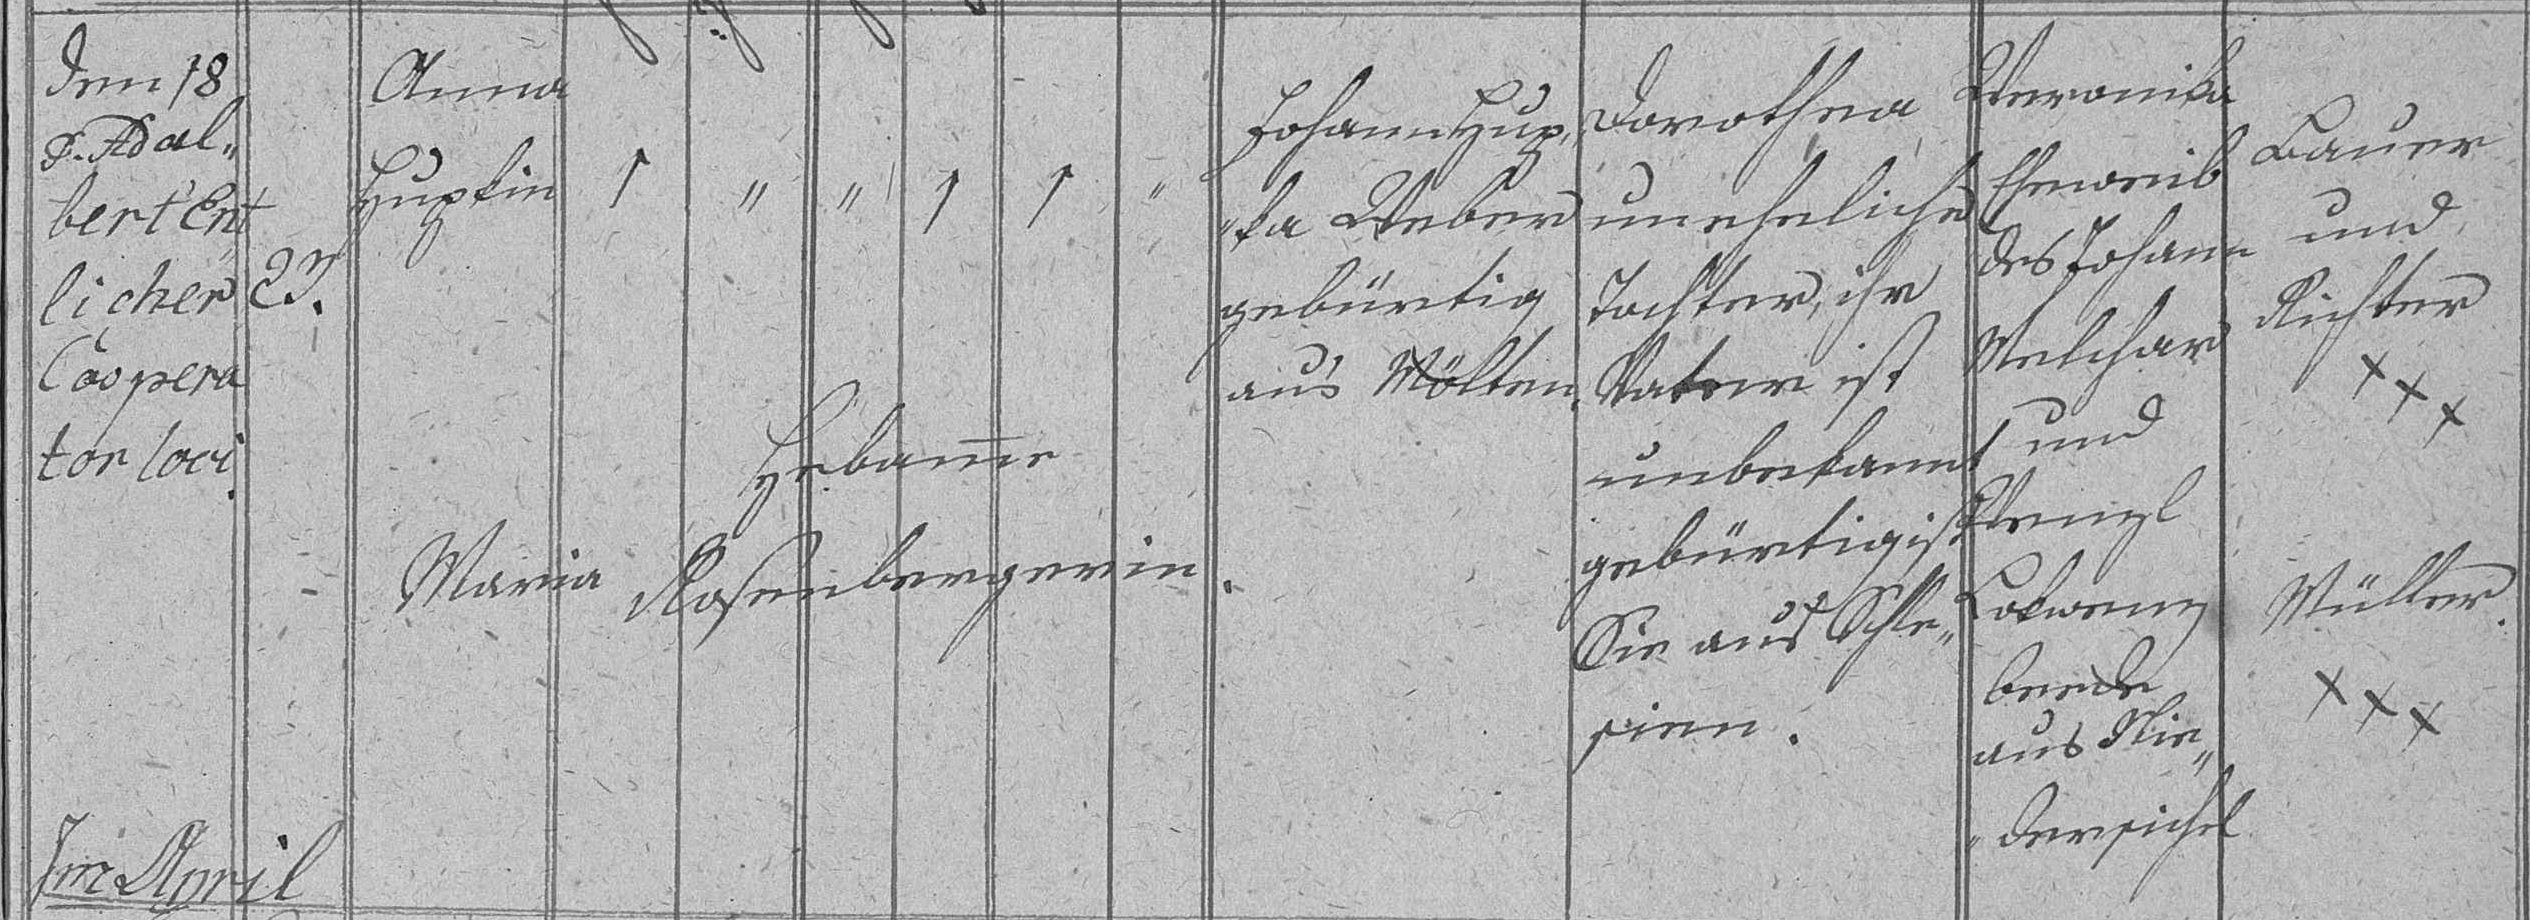 Den 18
P. Adal„
bert Ent
licher
Coopera
tor loci.
23.
Anna
Hupkin 1 " " 1 1 "
Hebam̅e
Maria Rosenbergerin.
Johann Hup„
„ka Weber
gebürtig
aus Mölten.
Dorothea
uneheliche
Tochter, ihr
Vater ist
unbekannt
gebürtig ist
Sie aus Schle„
sien.
Veronika
Eheweib
des Johann
Melchar
und
Wenzl
beede
aus Nie„
„dersichel
Bauer
und
Richter
x x x
Müller.
x x x
Im April